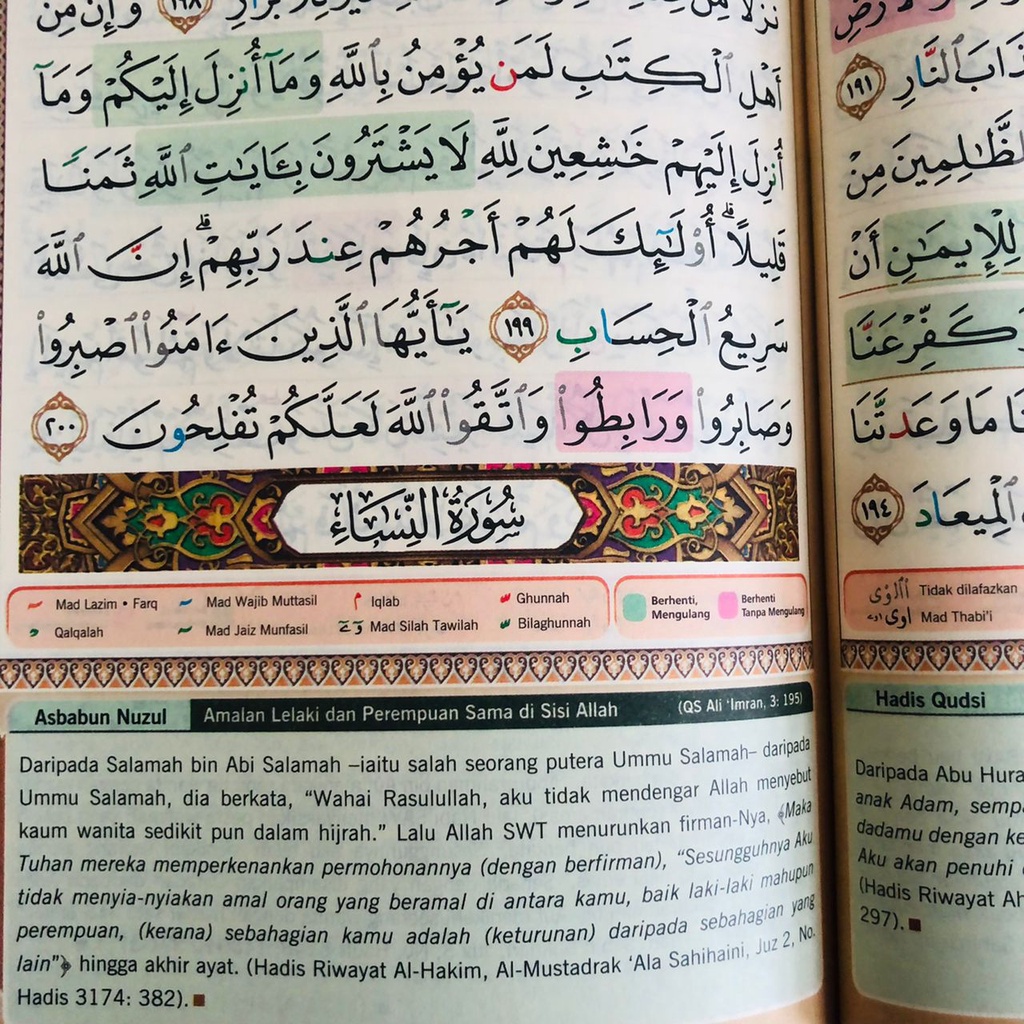 وَإِن مِّنْ
أَهْلِ ٱلْكِتَٰبِ لَمَن يُؤْمِنُ بِٱللَّهِ وَمَآ أُنزِلَ إِلَيْكُمْ وَمَآ
أُنزِلَ إِلَيْهِمْ خَٰشِعِينَ لِلَّهِ لَا يَشْتَرُونَ بِـَٔايَٰتِ ٱللَّهِ ثَمَنًا
قَلِيلًا ۗ أُو۟لَٰٓئِكَ لَهُمْ أَجْرُهُمْ عِندَ رَبِّهِمْ ۗ إِنَّ ٱللَّهَ
سَرِيعُ ٱلْحِسَابِ ١٩٩ يَٰٓأَيُّهَا ٱلَّذِينَ ءَامَنُوا۟ ٱصْبِرُوا۟
وَصَابِرُوا۟ وَرَابِطُوا۟ وَٱتَّقُوا۟ ٱللَّهَ لَعَلَّكُمْ تُفْلِحُونَ ٢٠٠
سُورَةُ النِّسَاءِ
Mad Lazim • Farq Mad Wajib Muttasil Iqlab Ghunnah
Qalqalah Mad Jaiz Munfasil Mad Silah Tawilah Bilaghunnah
Berhenti, Mengulang
Berhenti Tanpa Mengulang
Asbabun Nuzul Amalan Lelaki dan Perempuan Sama di Sisi Allah (QS Ali 'Imran, 3: 195)
Daripada Salamah bin Abi Salamah –iaitu salah seorang putera Ummu Salamah– daripada
Ummu Salamah, dia berkata, “Wahai Rasulullah, aku tidak mendengar Allah menyebut
kaum wanita sedikit pun dalam hijrah.” Lalu Allah SWT menurunkan firman-Nya, ﴾Maka
Tuhan mereka memperkenankan permohonannya (dengan berfirman), “Sesungguhnya Aku
tidak menyia-nyiakan amal orang yang beramal di antara kamu, baik laki-laki mahupun
perempuan, (kerana) sebahagian kamu adalah (keturunan) daripada sebahagian yang
lain”﴿ hingga akhir ayat. (Hadis Riwayat Al-Hakim, Al-Mustadrak 'Ala Sahihaini, Juz 2, No.
Hadis 3174: 382).
ٱلنَّارِ ١٩١
لظَّٰلِمِينَ مِنْ
لِلْإِيمَٰنِ أَنْ
كَفِّرْ عَنَّا
مَا وَعَدتَّنَا
ٱلْمِيعَادَ ١٩٤
Tidak dilafazkan
Mad Thabi'i
Hadis Qudsi
Daripada Abu Hura
anak Adam, semp
dadamu dengan ke
Aku akan penuhi
(Hadis Riwayat Ah
297).